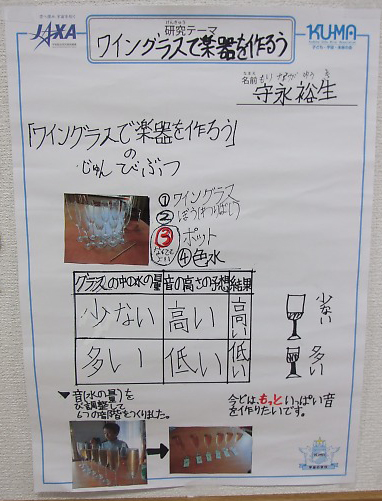 JAXA
KU-MA
けんきゅう
研究テーマ
ワイングラスで楽器を作ろう
なまえ
名前
もり なが ゆう き
守永裕生
「ワイングラスで楽器を作ろう」
の
じゅんびぶつ
①ワイングラス
②ぼう(わりばし)
③ポット
なくてもよい
④色水
グラスの中の水の量 音の高さの予想 結果
少ない 高い 高い
多い 低い 低い
少ない
多い
▼音(水の量)を
ちょう調整して
6つの音階をつくりました。
今どは、もっといっぱい音
を作りたいです。